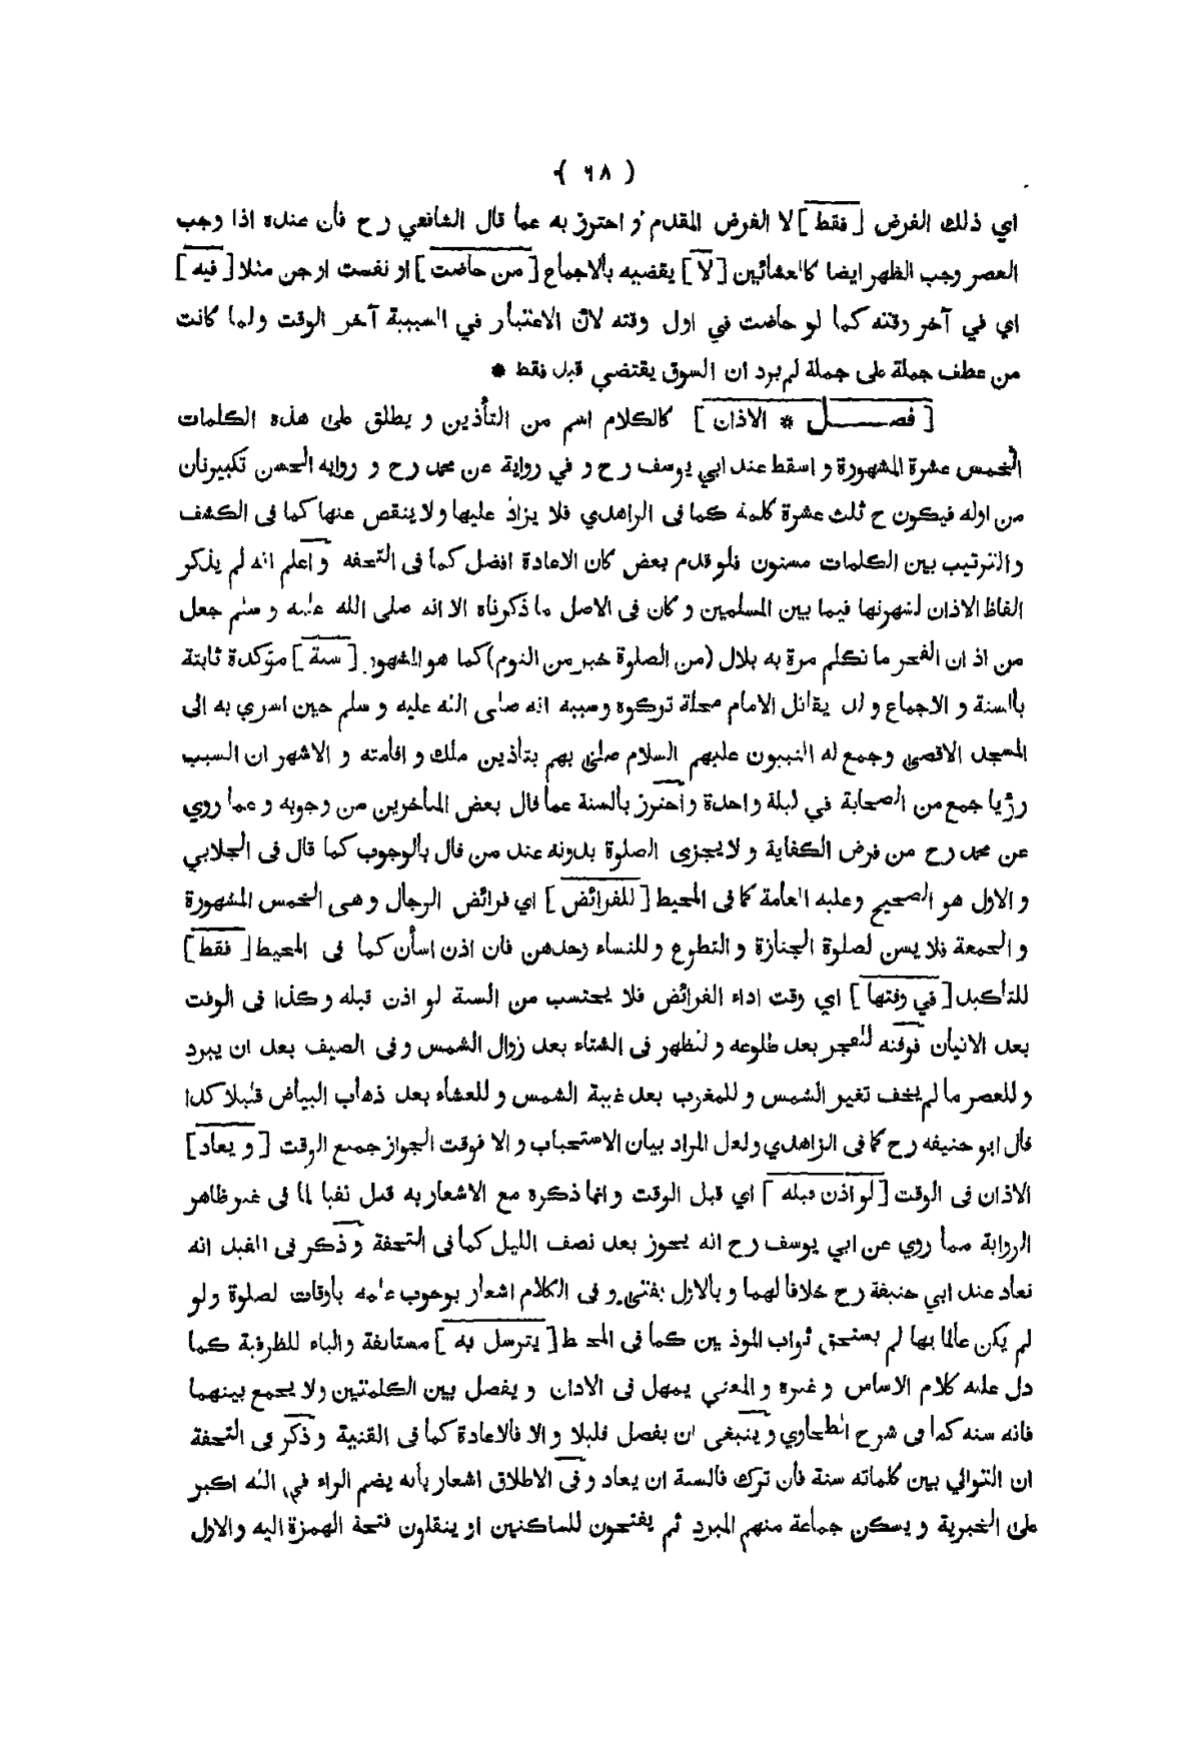 ( ٦٨ )
اي ذلك الفرض [ فقط ] لا الفرض المقدم و احترز به عما قال الشافعي رح فأن عنده اذا وجب
العصر وجب الظهر ايضا كالعشائين [ لا ] يقضيه بالاجماع [ من حاضت ] او نفست اوجن مثلا [ فيه ]
اي في آخر وقته كما لو حاضت في اول وقته لان الاعتبار في السببية آخر الوقت ولما كانت
من عطف جملة على جملة لم يرد ان السوق يقتضي قبل فقط *
[ فصــــل * الاذان ] كالكلام اسم من التأذين و يطلق على هذه الكلمات
الخمس عشرة المشهورة و اسقط عند ابي يوسف رح و في رواية عن محمد رح و رواية الحسن تكبيرتان
من اوله فيكون ح ثلث عشرة كلمة كما فى الزاهدي فلا يزاد عليها ولا ينقص عنها كما فى الكشف
و الترتيب بين الكلمات مسنون فلو قدم بعض كان الاعادة افضل كما فى التحفة و اعلم انه لم يذكر
الفاظ الاذان لشهرتها فيما بين المسلمين و كان فى الاصل ما ذكرناه الا انه صلى الله عليه و سلم جعل
من اذان الفجر ما تكلم مرة به بلال (من الصلوة خير من النوم) كما هو المشهور [ سنة ] مؤكدة ثابتة
بالسنة و الاجماع و لذا يقاتل الامام محلة تركوه وسببه انه صلى الله عليه و سلم حين اسري به الى
المسجد الاقصى وجمع له النبيون عليهم السلام صلى بهم بتأذين ملك و اقامته و الاشهر ان السبب
رؤيا جمع من الصحابة في ليلة واحدة و احترز بالسنة عما قال بعض المتأخرين من وجوبه و عما روي
عن محمد رح من فرض الكفاية و لا يجزى الصلوة بدونه عند من قال بالوجوب كما قال فى الجلابي
و الاول هو الصحيح وعليه العامة كما فى المحيط [ للفرائض ] اي فرائض الرجال و هى الخمس المشهورة
و الجمعة فلا يسن لصلوة الجنازة و التطوع و للنساء وحدهن فان اذن اسأن كما فى المحيط [ فقط ]
للتأكيد [ في وقتها ] اي وقت اداء الفرائض فلا يحتسب من السنة لو اذن قبله و كذا فى الوقت
بعد الاتيان فوقته للفجر بعد طلوعه و للظهر فى الشتاء بعد زوال الشمس و فى الصيف بعد ان يبرد
و للعصر ما لم يخف تغير الشمس و للمغرب بعد غيبة الشمس و للعشاء بعد ذهاب البياض قليلا كذا
قال ابو حنيفه رح كما فى الزاهدي ولعل المراد بيان الاستحباب و الا فوقت الجواز جميع الوقت [ و يعاد ]
الاذان فى الوقت [ لو اذن قبله ] اي قبل الوقت و انما ذكره مع الاشعار به قبل نفيا لما فى غير ظاهر
الرواية مما روي عن ابي يوسف رح انه يجوز بعد نصف الليل كما فى التحفة و ذكر فى انه
تعاد عند ابي حنيفة رح خلافا لهما و بالاول يفتى و فى الكلام اشعار بوجوب علمه بأوقات لصلوة و لو
لم يكن عالما بها لم يستحق ثواب الموذنين كما فى المحيط [ يترسل به ] مستانفة والباء للظرفية كما
دل عليه كلام الاساس و غيره و المعني يمهل فى الاذان و يفصل بين الكلمتين ولا يجمع بينهما
فانه سنه كما فى شرح الطحاوي و ينبغى ان يفصل قليلا و الا فالاعادة كما فى القنية و ذكر فى التحفة
ان التوالي بين كلماته سنة فأن ترك فالسنة ان يعاد و فى الاطلاق اشعار بأنه يضم الراء في الله اكبر
على الخبرية و يسكن جماعة منهم المبرد ثم يفتحون للساكنين او ينقلون فتحة الهمزة اليه والاول